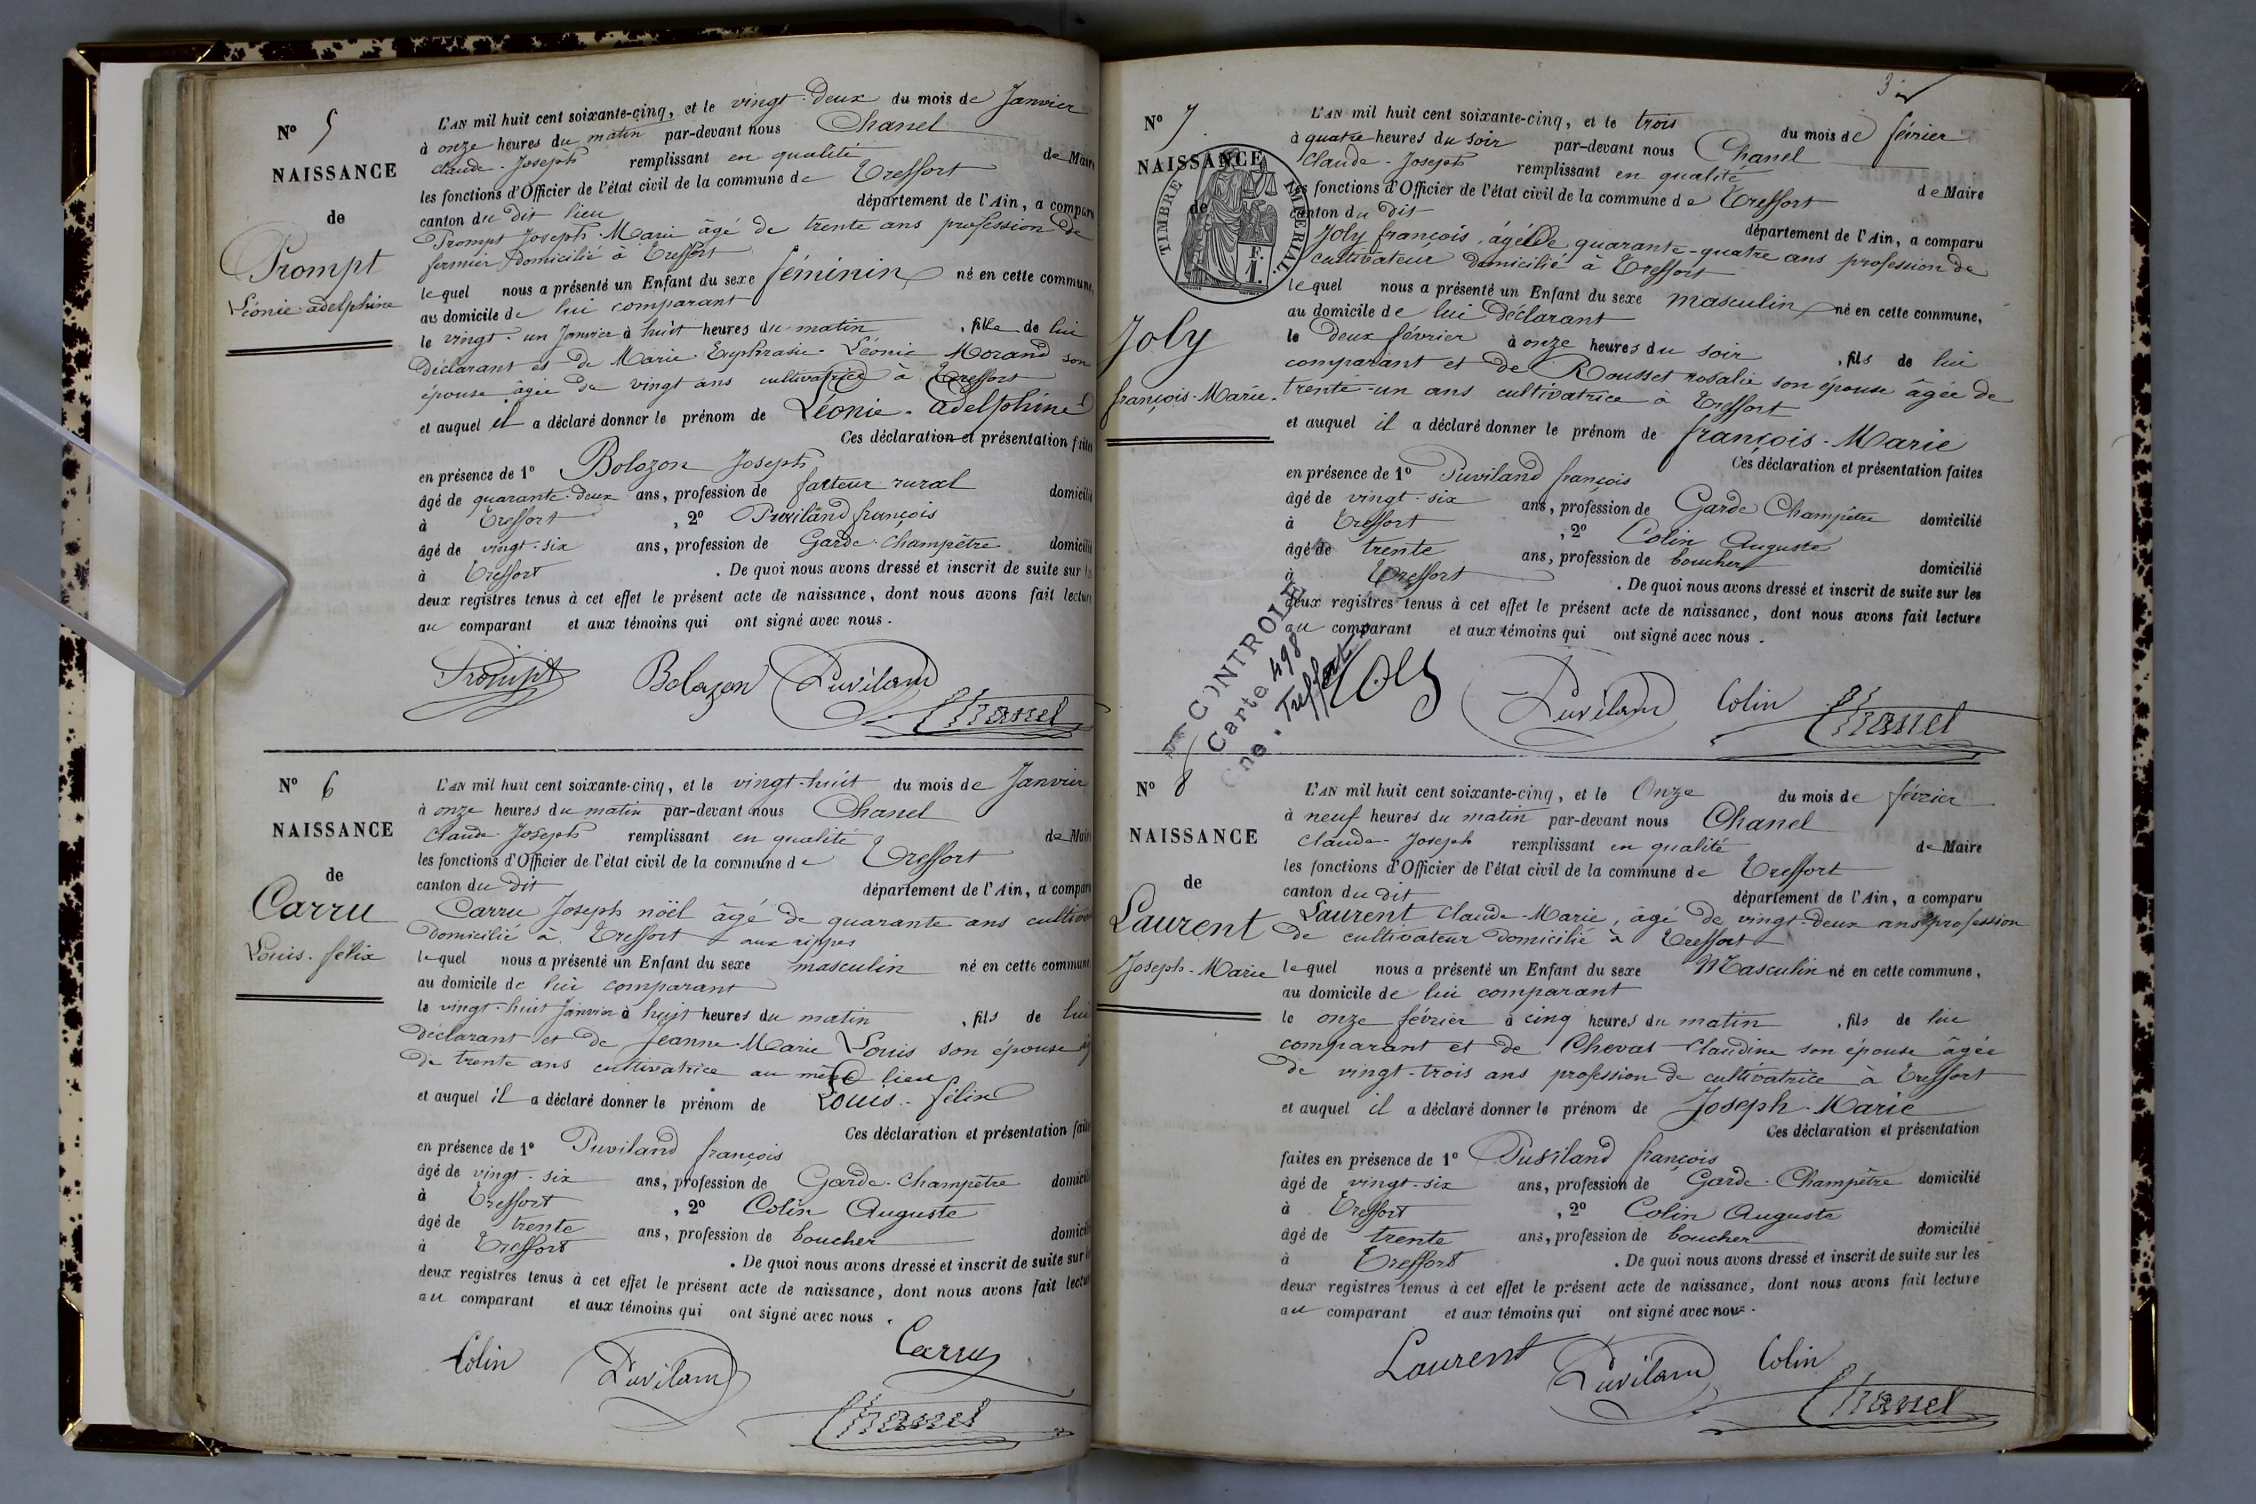 Nº 5
NAISSANCE
de
Prompt
Léonie adelphine
L'AN mil huit cent soixante-cinq, et le vingt-deux du mois de Janvier
à onze heures du matin par-devant nous Chanel
Claude-Joseph remplissant en qualité de Maire
les fonctions d'Officier de l'état civil de la commune de Treffort
canton du dit lieu département de l'Ain, a comparu
Prompt Joseph-Marie âgé de trente ans profession de
fermier domicilié à Treffort
lequel nous a présenté un Enfant du sexe féminin né en cette commune,
au domicile de lui comparant
le vingt-un Janvier à huit heures du matin, fille de lui
Déclarant et de Marie-Euphrasie-Léonie Morand son
épouse âgée de vingt ans cultivatrice à Treffort
et auquel il a déclaré donner le prénom de Léonie-adelphine
Ces déclaration et présentation faites
en présence de 1º Bolozon Joseph
âgé de quarante-deux ans, profession de facteur rural domicilié
à Treffort, 2º Puviland françois
âgé de vingt-six ans, profession de Garde-champêtre domicilié
à Treffort. De quoi nous avons dressé et inscrit de suite sur les
deux registres tenus à cet effet le présent acte de naissance, dont nous avons fait lecture
au comparant et aux témoins qui ont signé avec nous.
Prompt Bolozon Puviland
Chanel
Nº 6
NAISSANCE
de
Carru
Louis-félix
L'AN mil huit cent soixante-cinq, et le vingt-huit du mois de Janvier
à onze heures du matin par-devant nous Chanel
Claude-Joseph remplissant en qualité de Maire
les fonctions d'Officier de l'état civil de la commune de Treffort
canton du dit département de l'Ain, a comparu
Carru Joseph nöël âgé de quarante ans cultiva
domicilié à Treffort aux rippes
lequel nous a présenté un Enfant du sexe masculin né en cette commune
au domicile de lui comparant
le vingt-huit Janvier à huit heures du matin, fils de lui
déclarant et de Jeanne-Marie Louis son épouse âg
de trente ans cultivatrice au même lieu
et auquel il a déclaré donner le prénom de Louis-félix
Ces déclaration et présentation faites
en présence de 1º Puviland françois
âgé de vingt-six ans, profession de Garde-champêtre domicilié
à Treffort, 2º Colin Auguste
âgé de trente ans, profession de boucher domicilié
à Treffort. De quoi nous avons dressé et inscrit de suite sur les
deux registres tenus à cet effet le présent acte de naissance, dont nous avons fait lecture
au comparant et aux témoins qui ont signé avec nous.
Colin Puviland Carru
Chanel
3
Nº 7
NAISSANCE
de
TIMBRE IMPERIAL
F.
1.
Joly
françois-Marie.
L'AN mil huit cent soixante-cinq, et le trois du mois de février
à quatre heures du soir par-devant nous Chanel
Claude-Joseph remplissant en qualité de Maire
les fonctions d'Officier de l'état civil de la commune de Treffort
canton du dit département de l'Ain, a comparu
Joly françois, âgé de quarante-quatre ans profession de
cultivateur domicilié à Treffort
lequel nous a présenté un Enfant du sexe masculin né en cette commune,
au domicile de lui déclarant
le deux février à onze heures du soir, fils de lui
comparant et de Rousset rosalie son épouse âgée de
trente-un ans cultivatrice à Treffort
et auquel il a déclaré donner le prénom de françois-Marie
Ces déclaration et présentation faites
en présence de 1º Puviland françois
âgé de vingt-six ans, profession de Garde Champêtre domicilié
à Treffort, 2º Colin Auguste
âgé de trente ans, profession de boucher domicilié
à Treffort. De quoi nous avons dressé et inscrit de suite sur les
deux registres tenus à cet effet le présent acte de naissance, dont nous avons fait lecture
au comparant et aux témoins qui ont signé avec nous.
CONTROLE
Carte 498
Cne. Treffort
Joly Puviland Colin Chanel
Nº 8
NAISSANCE
de
Laurent
Joseph-Marie
L'AN mil huit cent soixante-cinq, et le Onze du mois de février
à neuf heures du matin par-devant nous Chanel
Claude-Joseph remplissant en qualité de Maire
les fonctions d'Officier de l'état civil de la commune de Treffort
canton du dit département de l'Ain, a comparu
Laurent Claude-Marie, âgé de vingt-deux ans profession
de cultivateur domicilié à Treffort
lequel nous a présenté un Enfant du sexe Masculin né en cette commune,
au domicile de lui comparant
le onze février à cinq heures du matin, fils de lui
comparant et de Chevat Claudine son épouse âgée
de vingt-trois ans profession de cultivatrice à Treffort
et auquel il a déclaré donner le prénom de Joseph-Marie
Ces déclaration et présentation
faites en présence de 1º Puviland françois
âgé de vingt-six ans, profession de Garde-Champêtre domicilié
à Treffort, 2º Colin Auguste
âgé de trente ans, profession de boucher domicilié
à Treffort. De quoi nous avons dressé et inscrit de suite sur les
deux registres tenus à cet effet le présent acte de naissance, dont nous avons fait lecture
au comparant et aux témoins qui ont signé avec nous.
Laurent Puviland Colin
Chanel